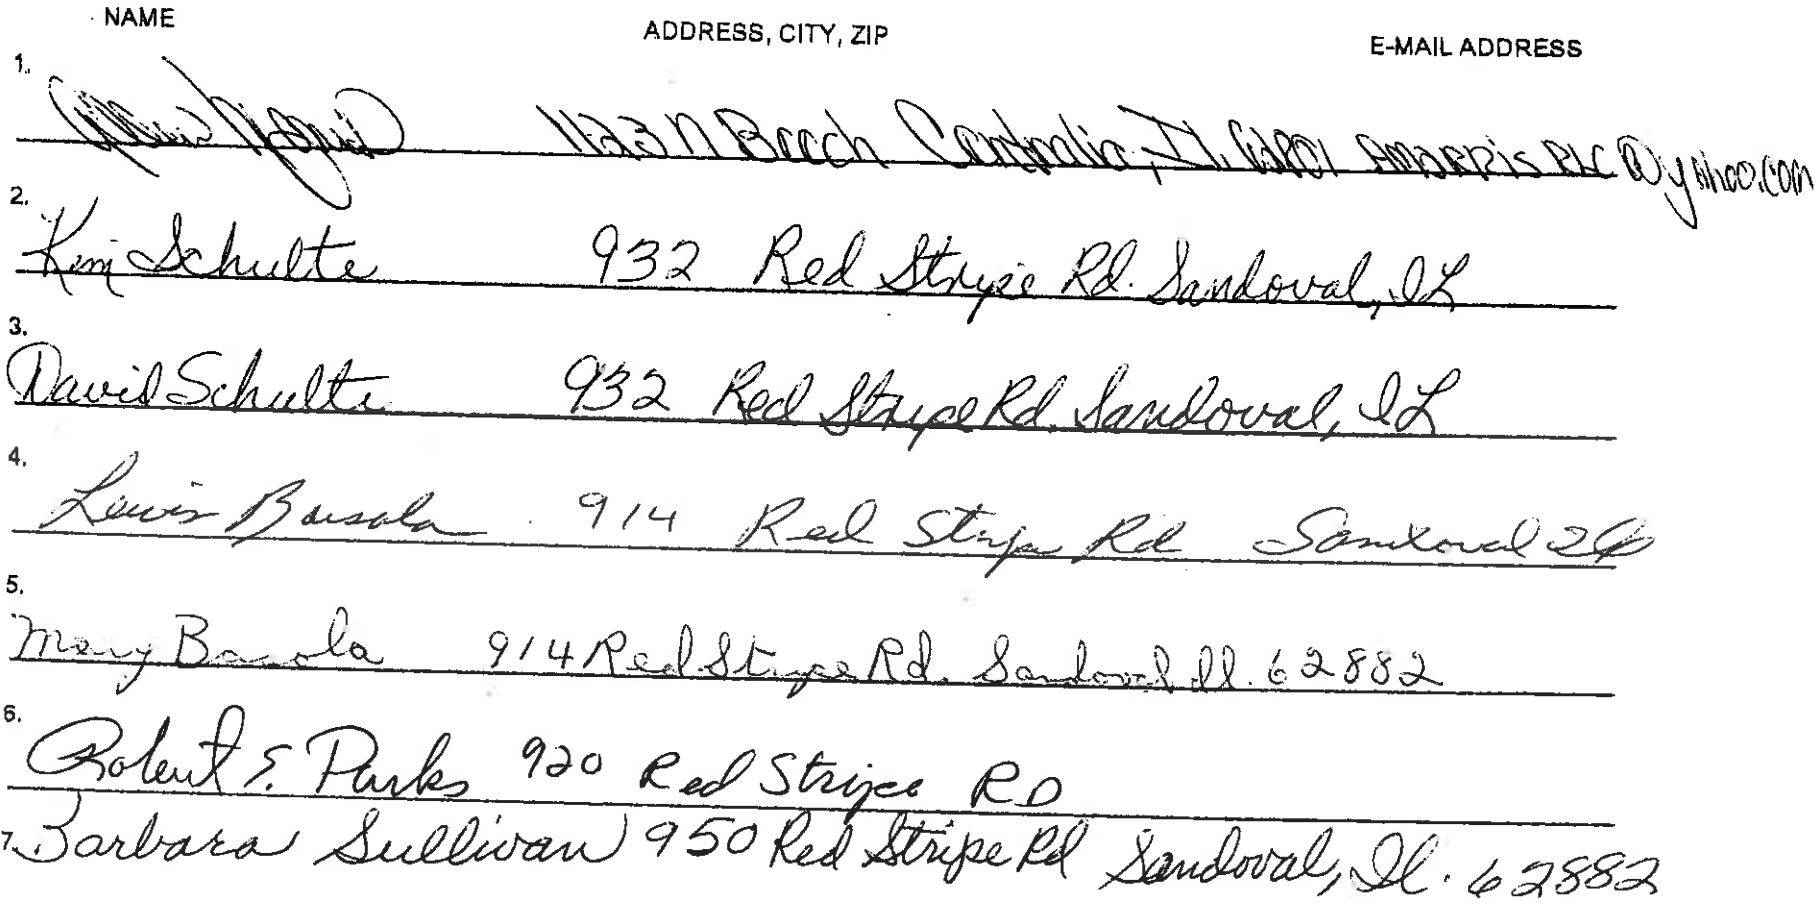 NAME ADDRESS, CITY, ZIP E-MAIL ADDRESS
1. 1123 N Beech Centralia, Il. 62801
2. Kim Schulte 932 Red Stripe Rd. Sandoval, IL
3. David Schulte 932 Red Stripe Rd. Sandoval, IL
4. Lewis 914 Red Stripe Rd Sandoval
5. Mary 914 Red Stripe Rd. Sandoval Il. 62882
6. Robert E. Parks 920 Red Stripe RD
7. Barbara Sullivan 950 Red Stripe Rd Sandoval, Il. 62882